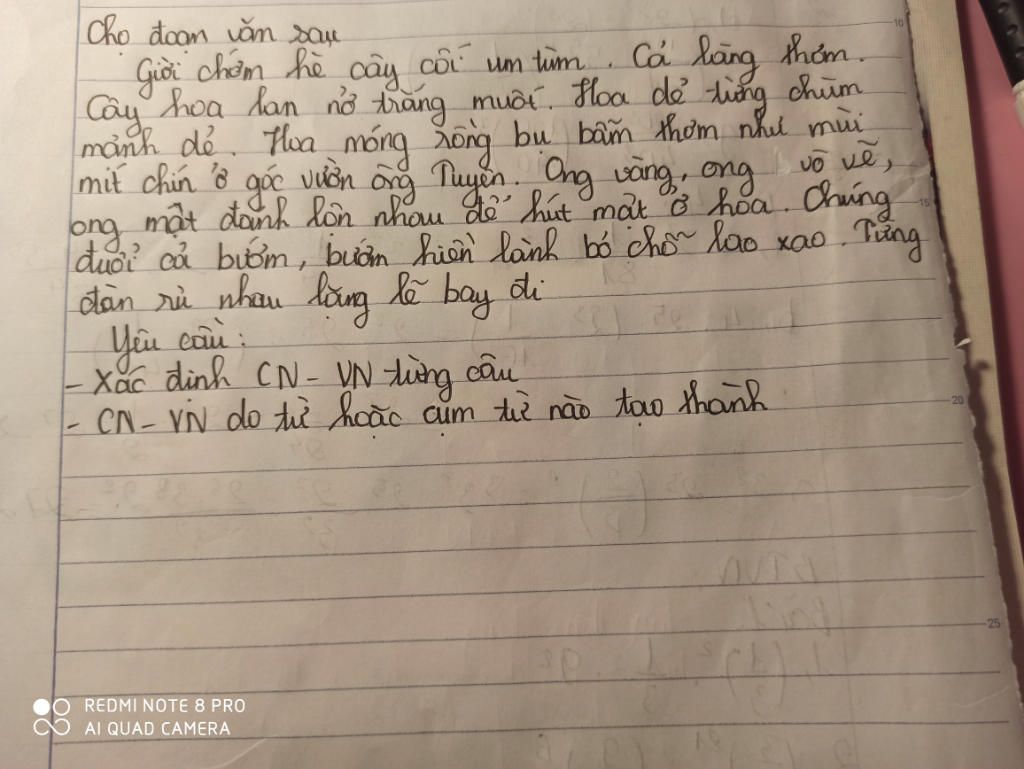 Cho đoạn văn sau
Giời chớm hè cây cối um tùm. Cả làng thơm.
Cây hoa lan nở trắng muối. Hoa dẻ từng chùm
mảnh dẻ. Hoa móng rồng bu bẫm thơm như mùi
mít chín ở góc vườn ông Tuyên. Ong vàng, ong vò vẽ,
ong mật đánh lộn nhau để hút mật ở hoa. Chúng
đuổi cả bướm, bướm hiền lành bỏ chỗ lao xao. Từng
đàn rủ nhau lặng lẽ bay đi
Yêu cầu:
- Xác định CN - VN từng câu
- CN - VN do từ hoặc cụm từ nào tạo thành
REDMI NOTE 8 PRO
AI QUAD CAMERA
10
15
20
25